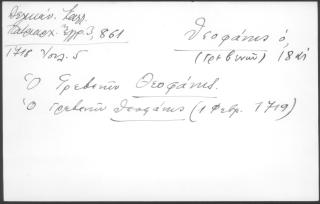 Πατριαρχ. Ἔγγρ. 3, 861
1718 Ἰουλ. 5
Θεοφάνης ὁ,
(Γρεβενῶν) 18
Ὁ Γρεβενῶν Θεοφάνης.
Ὁ Γρεβενῶν Θεοφάνης (1 Φεβρ. 1719)